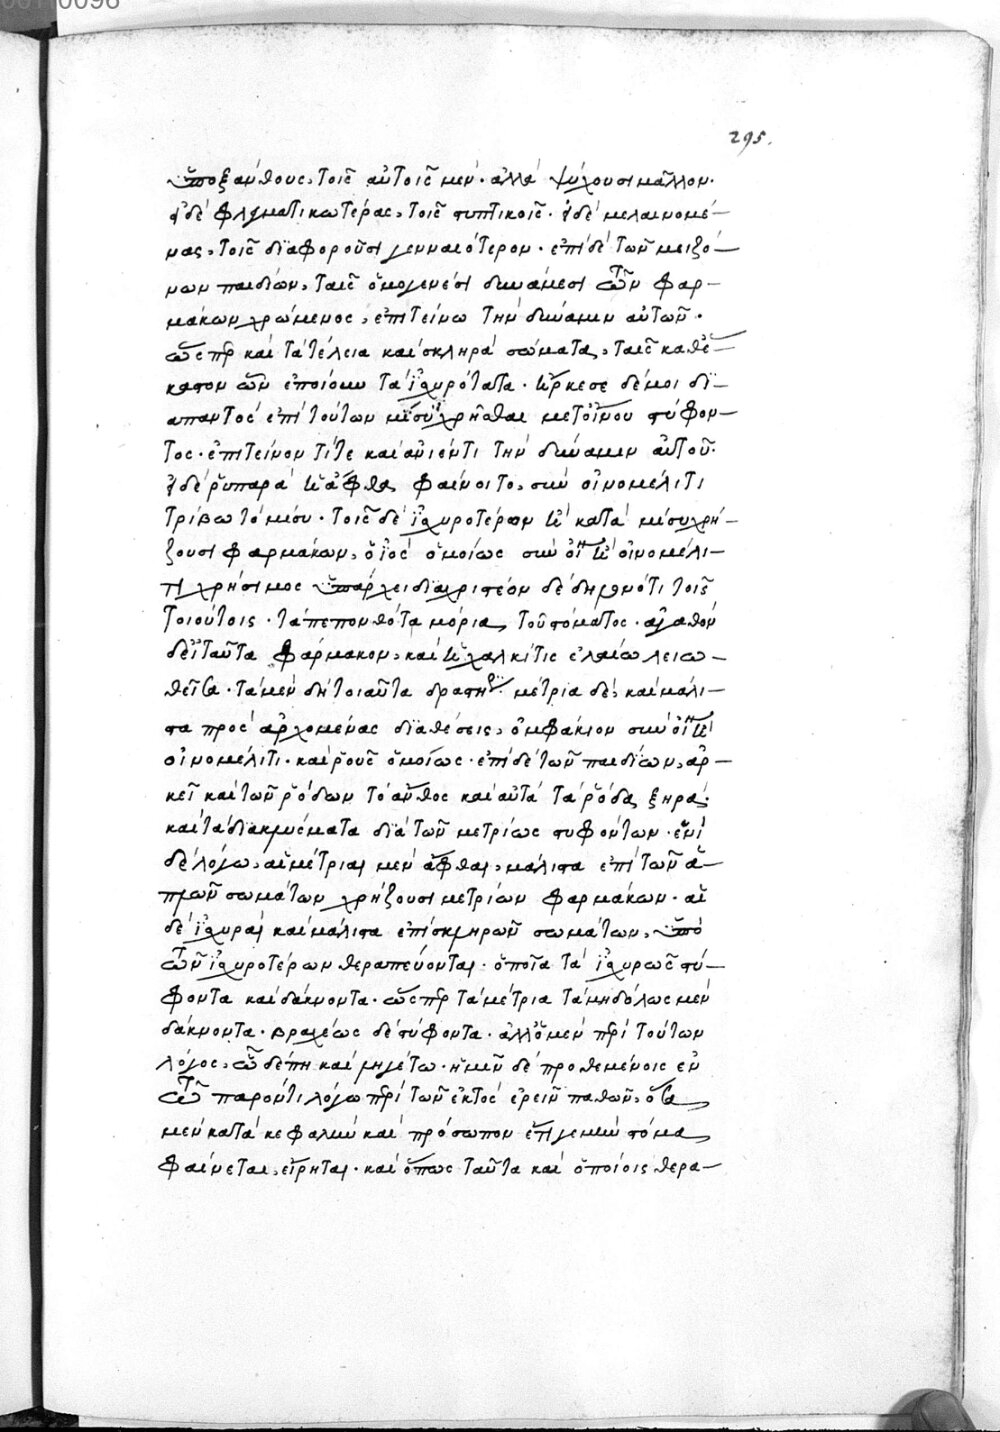 295.
ὑποξάνθους, τοῖς αὐτοῖς μέν· ἀλλὰ ψύχουσι μᾶλλον·
τὰς δὲ φλεγματικωτέρας, τοῖς ῥυπτικοῖς· τὰς δὲ μελαινομέ-
νας, τοῖς διαφοροῦσι γενναιότερον· ἐπὶ δὲ τῶν μειζό-
νων παιδίων, ταῖς ὁμογενέσι δυνάμεσι τῶν φαρ-
μάκων χρώμενος, ἐπιτείνω τὴν δύναμιν αὐτῶν·
ὥσπερ καὶ τὰ τέλεια καὶ σκληρὰ σώματα, ταῖς καθ' ἕ-
καστον ὧν ἐποίουν τὰ ἰσχυρότατα· ἤρκεσε δέ μοι δι-
απαντὸς ἐπὶ τούτων μίσυϊ χρῆσθαι μετ' οἴνου στύφον-
τος· ἐπιτείνοντί τε καὶ ἀνιέντι τὴν δύναμιν αὐτοῦ·
εἰ δὲ ῥυπαρὰ ἡ ἄφθα φαίνοιτο, σὺν οἰνομέλιτι
τρίβω τὸ μίσυ· τοῖς δὲ ἰσχυροτέρων ἢ κατὰ μίσυ χρῄ-
ζουσι φαρμάκων, ὁ ἰὸς ὁμοίως σὺν οἴνῳ ἢ οἰνομέλι-
τι χρήσιμος ὑπάρχει διαχριστέον δὲ δηλονότι τοῖς
τοιούτοις· τὰ πεπονθότα μόρια, τοῦ στόματος· ἀγαθὸν
δ' εἰς ταῦτα φάρμακον, καὶ ἡ χαλκῖτις ἐλαίῳ λειω-
θεῖσα· τὰ μὲν δὴ τοιαῦτα δραστήρια· μέτρια δὲ, καὶ μάλι-
στα πρὸς ἀρχομένας διαθέσεις, ὀμφάκιον σὺν οἴνῳ ἢ
οἰνομέλιτι· καὶ ῥοῦς ὁμοίως· ἐπὶ δὲ τῶν παιδίων, ἀρ-
κεῖ καὶ τῶν ῥόδων τὸ ἄνθος καὶ αὐτὰ τὰ ῥόδα ξηρά·
καὶ τὰ διακλύσματα διὰ τῶν μετρίως στυφόντων· ἑνὶ
δὲ λόγῳ, αἱ μέτριαι μὲν ἄφθαι, μάλιστα ἐπὶ τῶν ἁ-
παλῶν σωμάτων χρῄζουσι μετρίων φαρμάκων· αἱ
δὲ ἰσχυραὶ καὶ μάλιστα ἐπὶ σκληρῶν σωμάτων, ὑπὸ
τῶν ἰσχυροτέρων θεραπεύονται· ὁποῖα τὰ ἰσχυρῶς στύ-
φοντα καὶ δάκνοντα· ὥσπερ τὰ μέτρια τὰ μηδόλως μὲν
δάκνοντα· βραχέως δὲ στύφοντα· ἀλλ' ὁ μὲν περὶ τούτων
λόγος, ὧδέ πη καὶ ῥηγέτω· ἡμῖν δὲ προθεμένοις ἐν
τῷ παρόντι λόγῳ περὶ τῶν ἐκτὸς ἐρεῖν παθῶν, ὅσα
μὲν κατὰ κεφαλὴν καὶ πρόσωπον ἔτι γε μὴν στόμα
φαίνεται, εἴρηται· καὶ ὅπως ταῦτα καὶ ὁποίοις θερα-